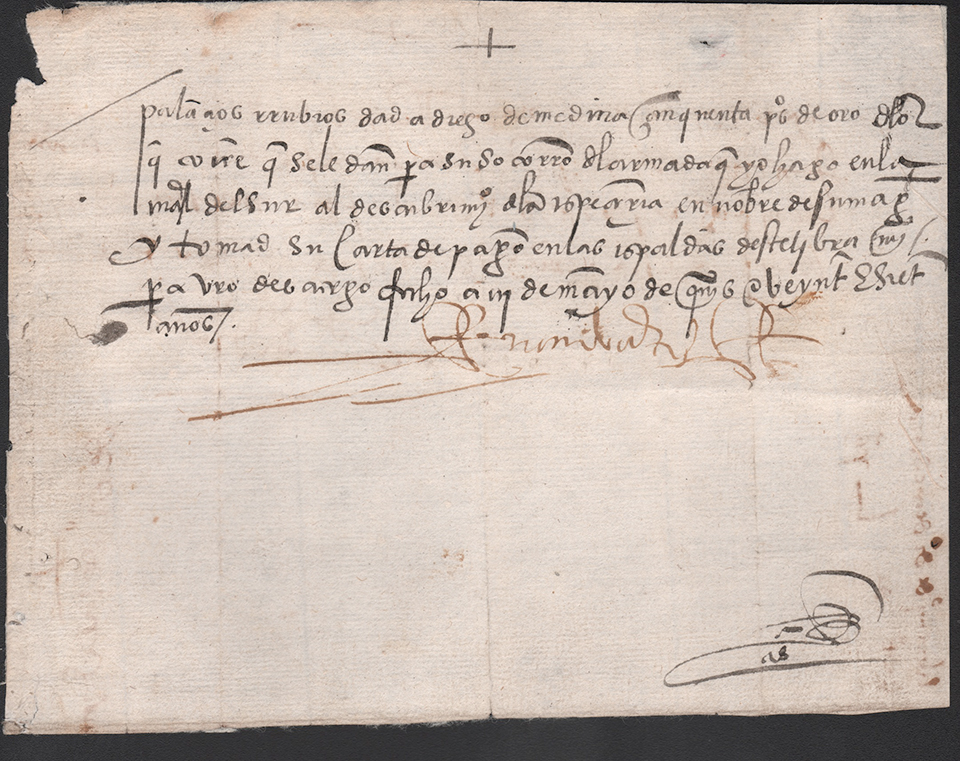 palaçios rrubios dad a diego de medina çinquenta pºs de oro dlos
q ovire q se le dan pa su socorro dl armada q yo hago en la
mar del sur al descubrimiº dla espeçieria en nobre de su mag
y tomad su carta de pago en las espaldas deste libra mi
pa vro descargo fecho a iii de mayo de quis e veynt e siet
años